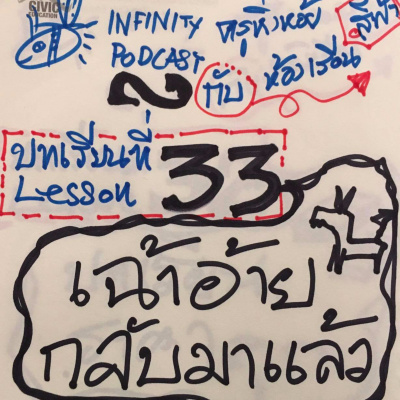 EDUCATION
INFINITY ครูหิ่งห้อย
PODCAST
2 กับ ห้องเรียน
บทเรียนที่ 33
Lesson
เฉ้าอ้าย
กลับมาแล้ว